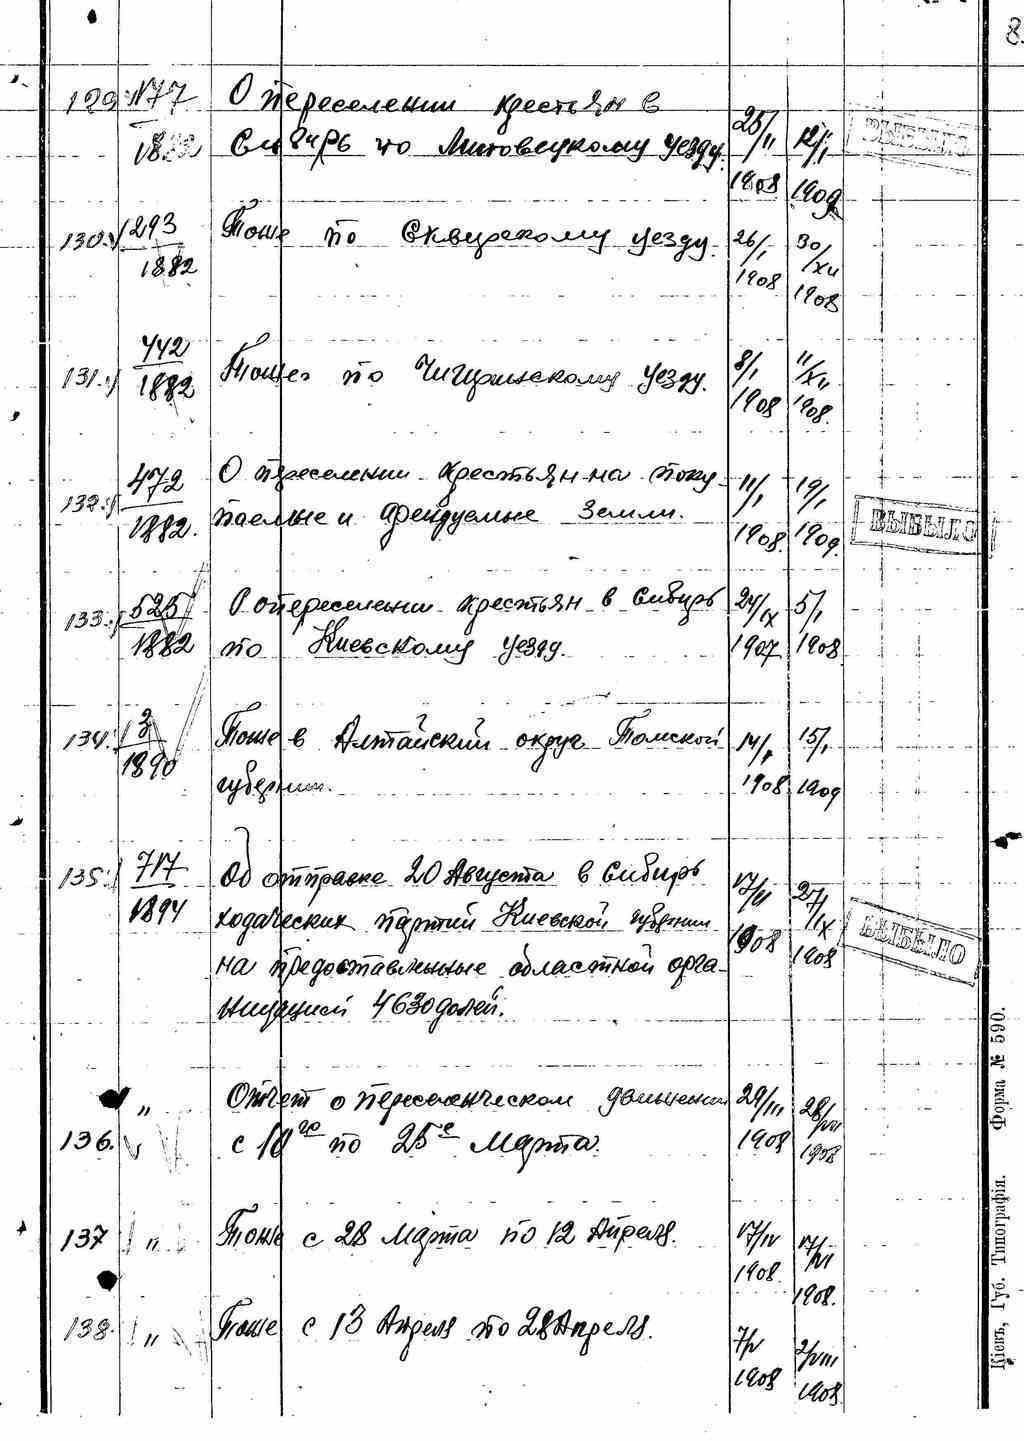 8.
129. 177 О переселении крестьян в 25/II 12/I ВЫБЫЛО
1882 Сибирь по Липовецкому уезду. 1908 1909
130. 1293 Тоже по Сквирскому уезду. 26/I 30/XII
1882 1908 1908
131. 442 Тоже по Чигиринскому уезду. 8/I 11/XII
1882 1908 1908.
132. 472 О переселении крестьян на поку- 11/I 19/I
1882. паемые и арендуемые земли. 1908. 1909. ВЫБЫЛО
133. 525 О переселении крестьян в Сибирь 24/IX 5/I
1882 по Киевскому уезду. 1907 1908
134. 3 Тоже в Алтайский округ Томской 14/I 15/I
1890 губернии. 1908 1909
135. 717 Об отправке 20 Августа в Сибирь 17/II 27/IX
1894 ходаческих партий Киевской губернии 1908 1908 ВЫБЫЛО
на предоставленные областной орга-
низацией 4630 долей.
" Отчет о переселенческом движении 29/III 28/VII
136. с 10го по 25е Марта. 1908 1908
137 " Тоже с 28 Марта по 12 Апреля. 17/IV 17/VI
1908. 1908.
138. " Тоже с 13 Апреля по 28 Апреля. 7/V 2/VIII
1908 1908
Кіевъ, Губ. Типографія. Форма № 590.